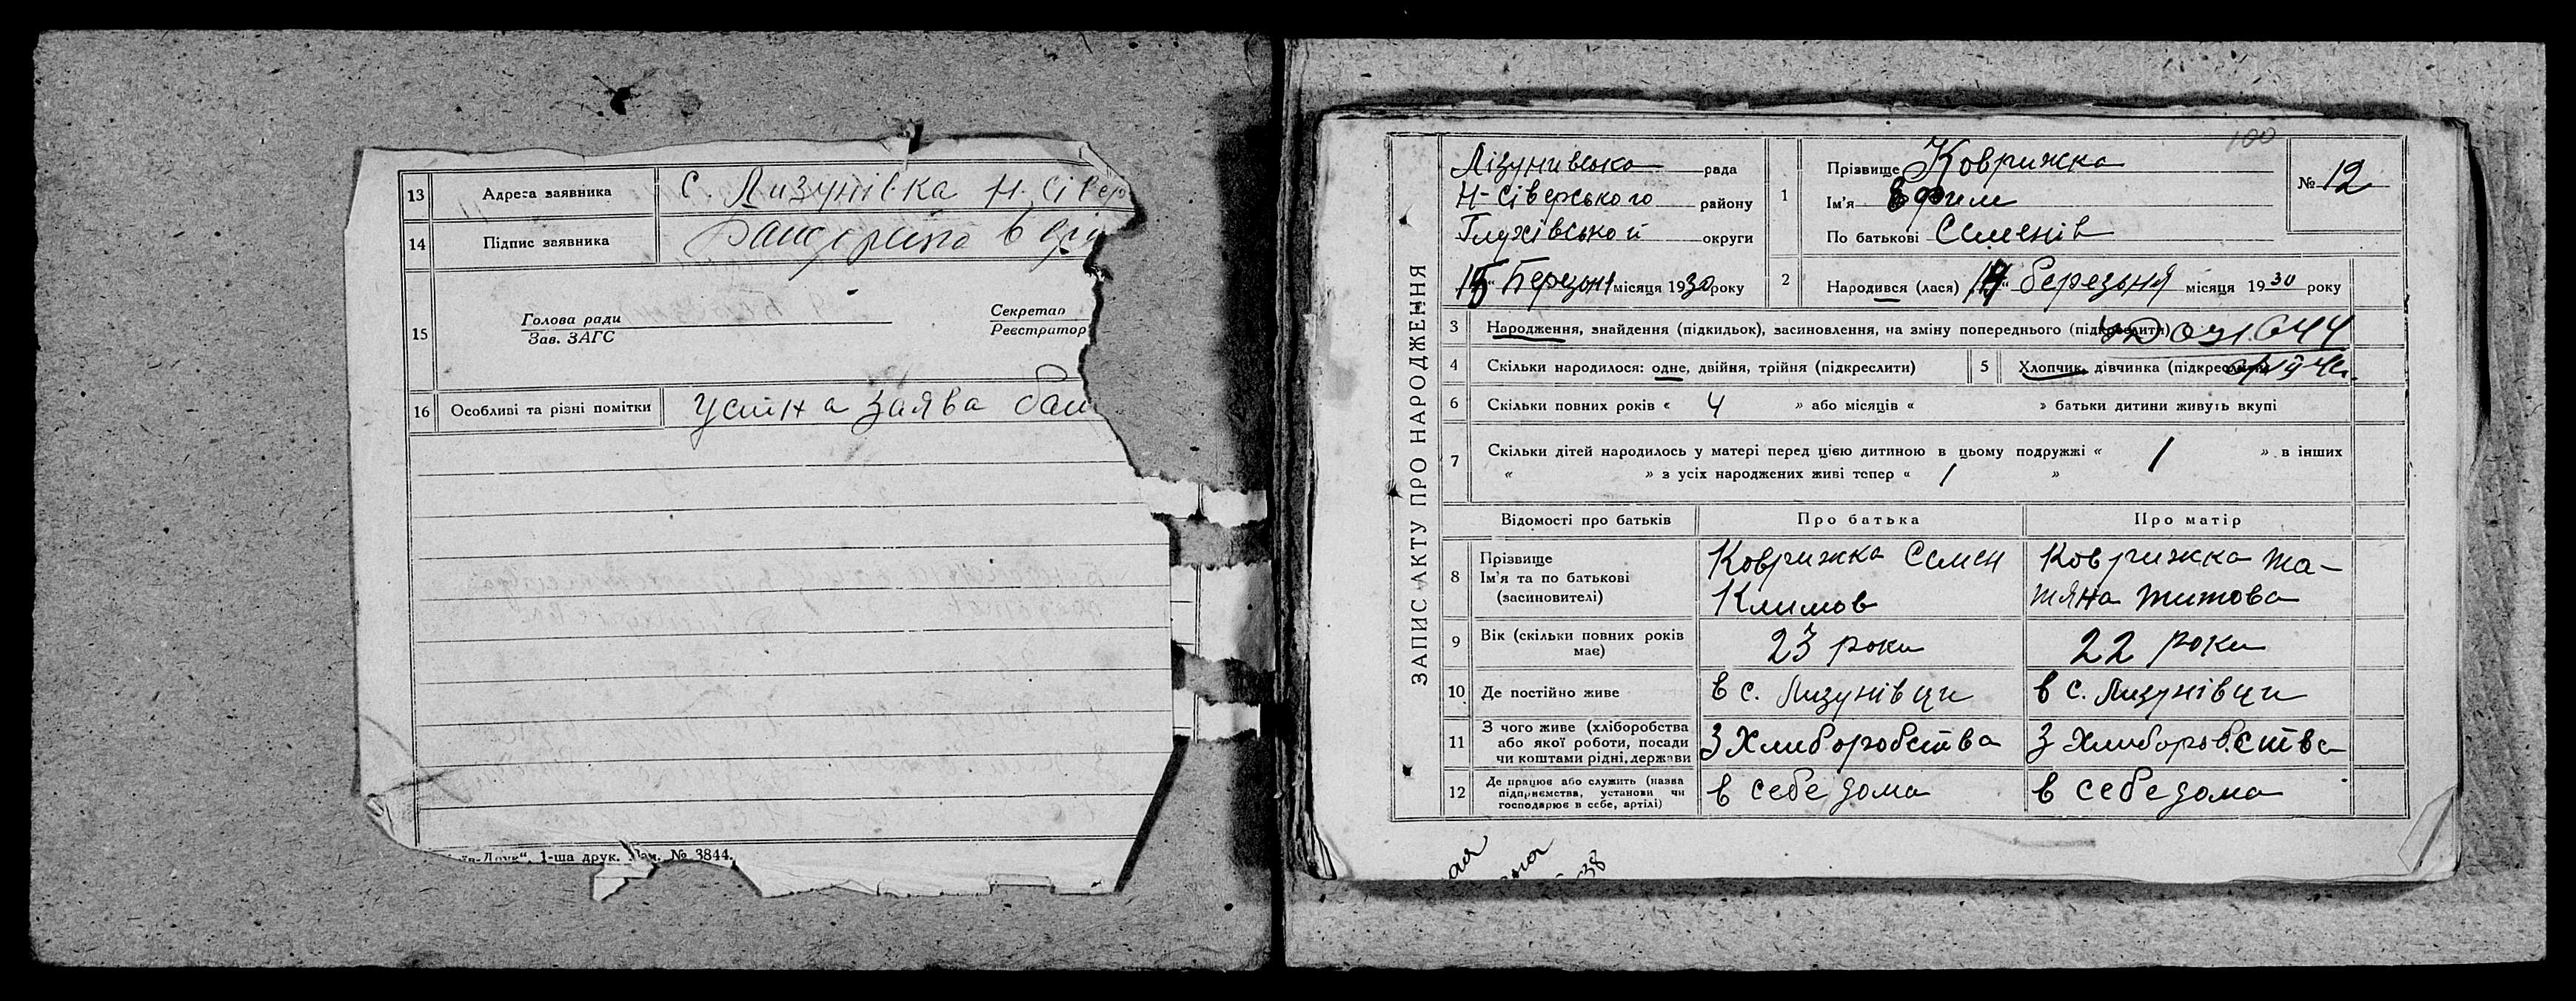 13 Адреса заявника с. Лизунівка Н. Сівер
14 Підпис заявника
15 Голова ради
Зав. ЗАГС
Секретар
Реєстратор
16 Особливі та різні помітки Устна заява бать
1-ша друк. Зам. № 3844.
100
ЗАПИС АКТУ ПРО НАРОДЖЕННЯ
Лізунивська рада
Н-Сіверського району
Глухівської округи
15 Березня місяця 1930 року
1 Прізвище Коврижка
Ім'я Ефим
По батькові Семенів
№ 12
2 Народився (лася) „14“ березьня місяця 1930 року
3 Народження, знайдення (підкидьок), засиновлення, на зміну попереднього (підкреслити)
4 Скільки народилося: одне, двійня, трійня (підкреслити)
5 Хлопчик, дівчинка (підкреслити)
6 Скільки повних років « 4 » або місяців « » батьки дитини живуть вкупі
7 Скільки дітей народилось у матері перед цією дитиною в цьому подружжі « 1 » в інших
« » з усіх народжених живі тепер « 1 »
Відомості про батьків Про батька Про матір
8 Прізвище
Ім'я та по батькові
(засиновителі)
Коврижка Семен
Климов
Коврижка Та-
тяна Титова
9 Вік (скільки повних років
має)
23 роки
22 роки
10 Де постійно живе
в с. Лизунівци
в с. Лизунівци
11 З чого живе (хліборобства
або якої роботи, посади
чи коштами рідні, держави
З Хлиборобства
З Хлиборобства
12 Де працює або служить (назва
підприємства, установи чи
господарює в себе, артілі)
в себе дома
в себе дома
38